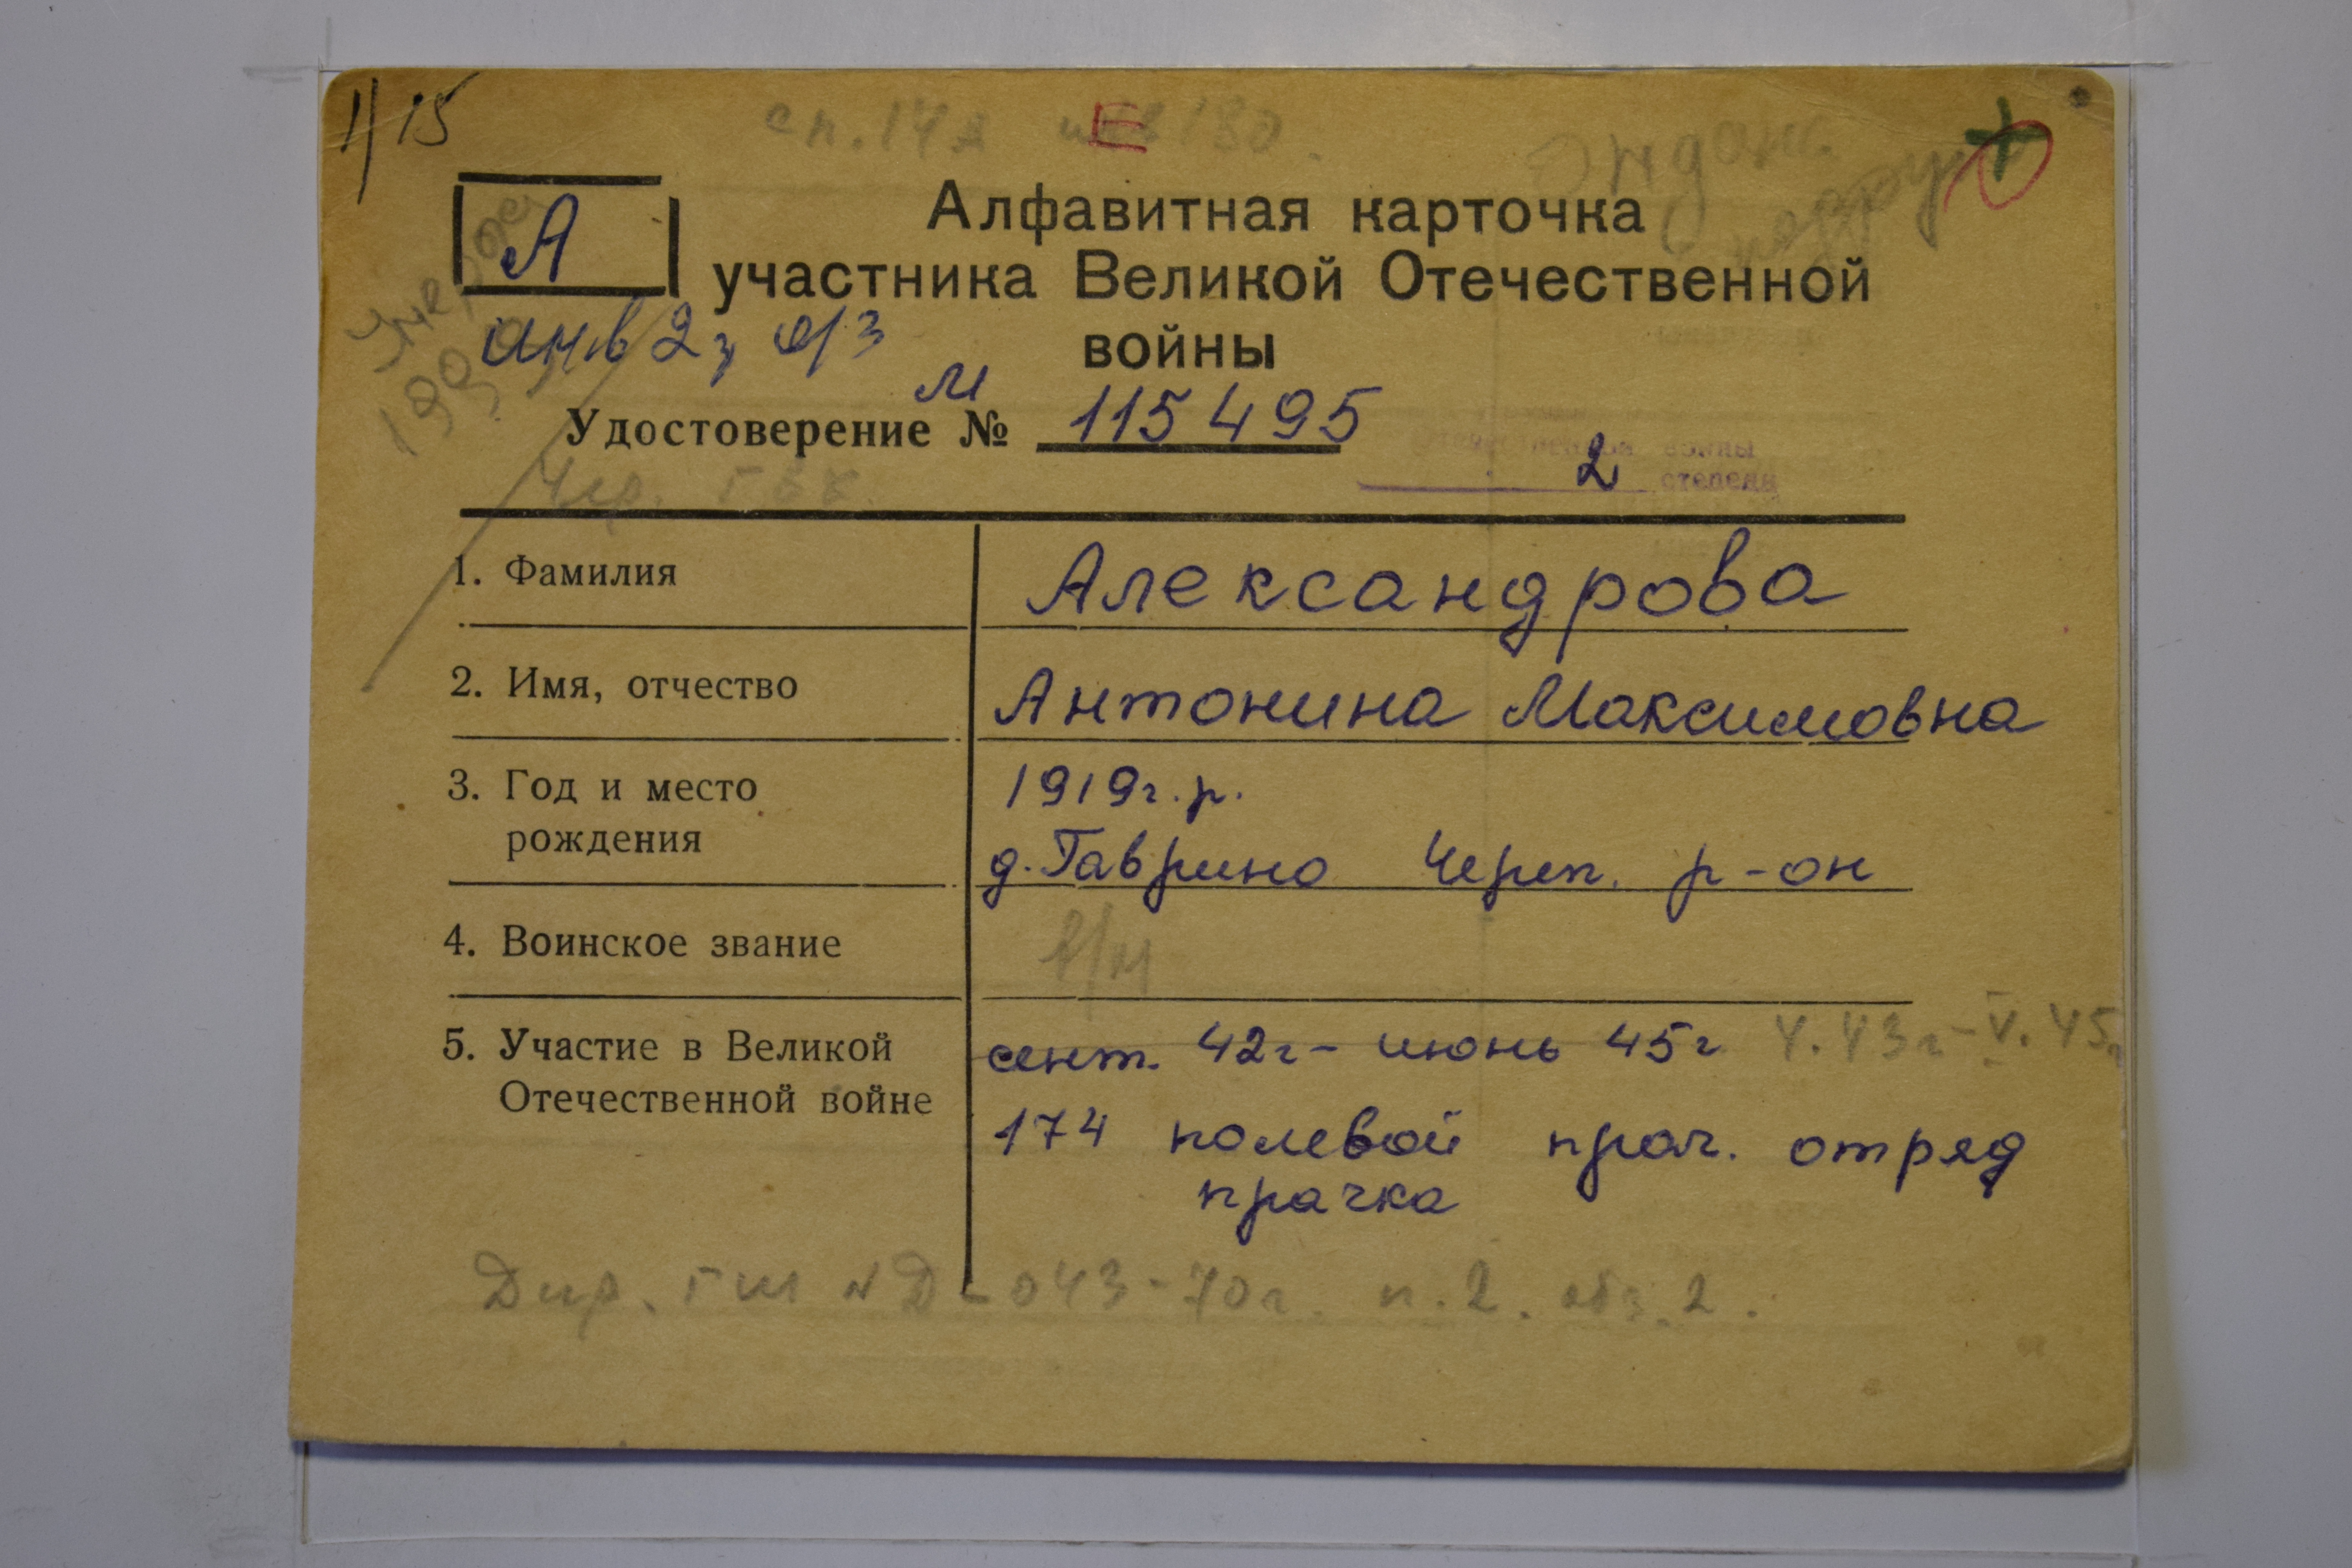 1/15
Е
А
Алфавитная карточка
участника Великой Отечественной
войны
инв 2
М
Удостоверение № 115495
войны
2 степени
1. Фамилия Александрова
2. Имя, отчество Антонина Максимовна
3. Год и место
рождения
1919г.р.
д. Гаврино Череп. р-он
4. Воинское звание в/н
5. Участие в Великой
Отечественной войне
сент. 42г - июнь 45г 4.43г - V.45г
174 полевой прач. отряд
прачка
Дир. ГШ №Д-043-70г. п.2. абз.2.